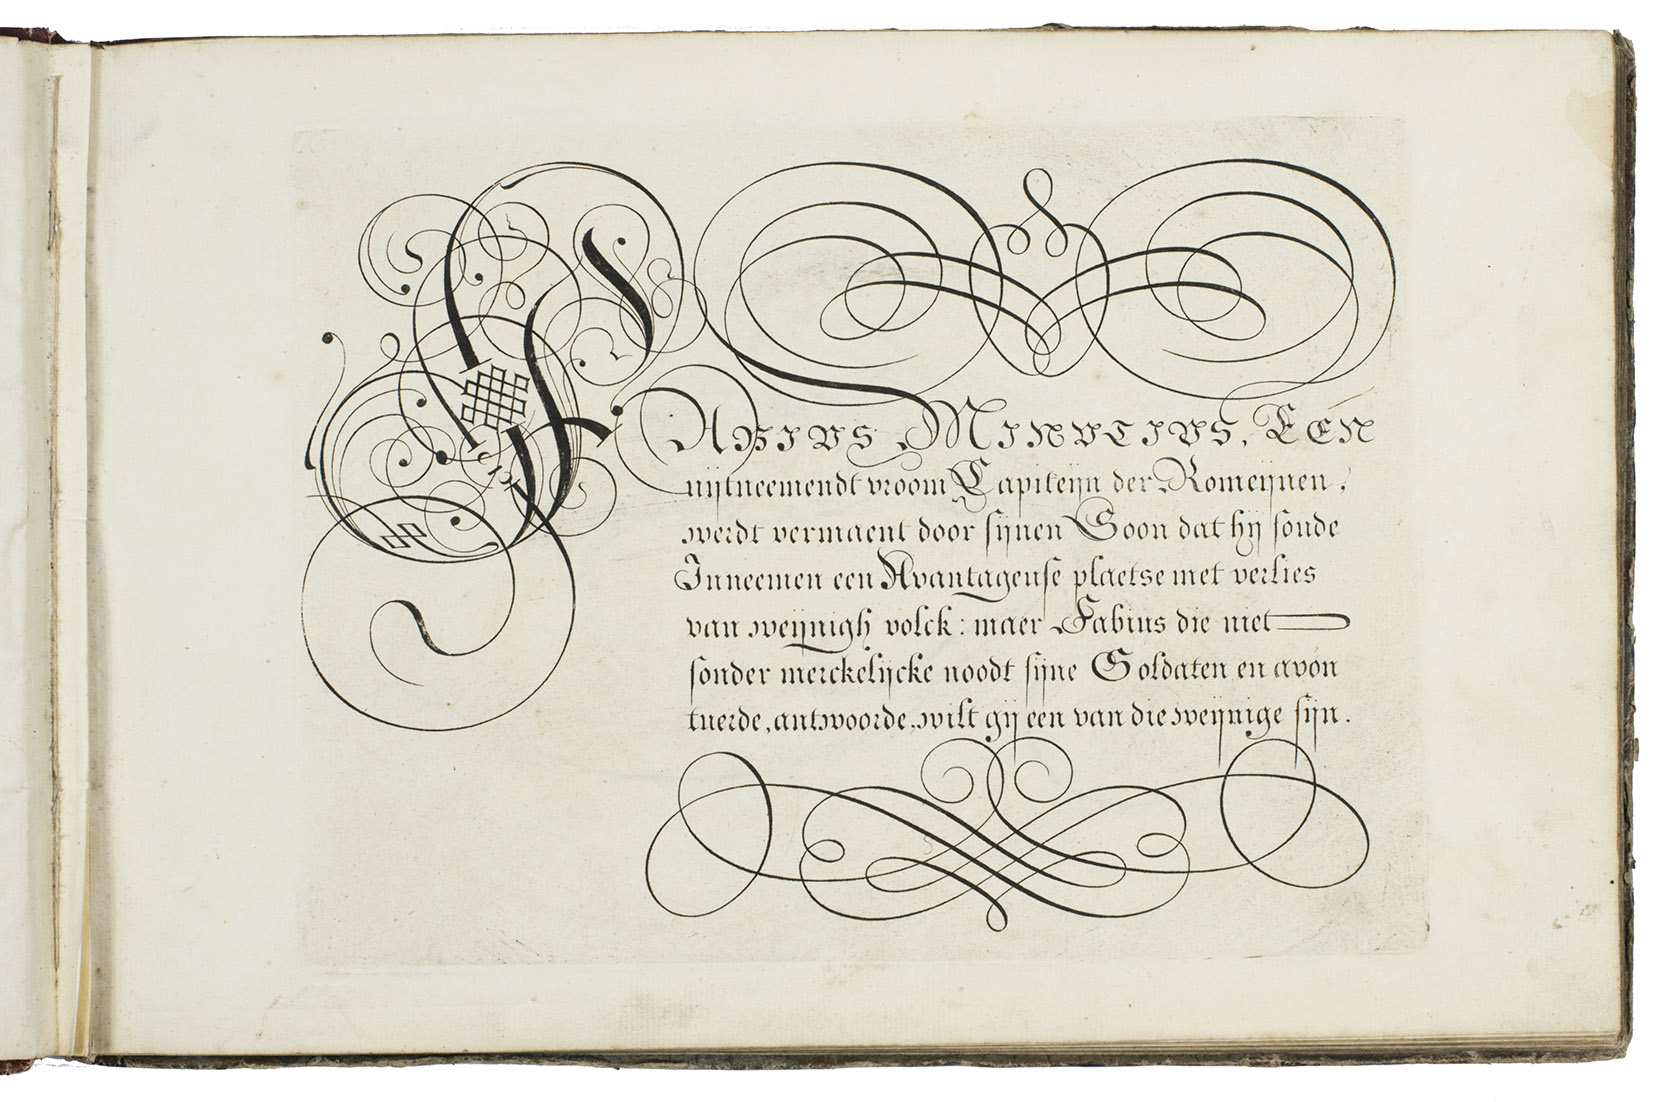 FABIVS MINVTIVS, EEN
uijtneemendt vroom Capiteijn der Romeijnen,
werdt vermaent door sijnen Soon dat hij soude
Inneemen een Avantageuse plaetse met verlies
van weijnigh volck: maer Fabius die niet
sonder merckelijcke noodt sijne Soldaten en avon
tuerde, antwoorde, wilt gij een van die weijnige sijn.